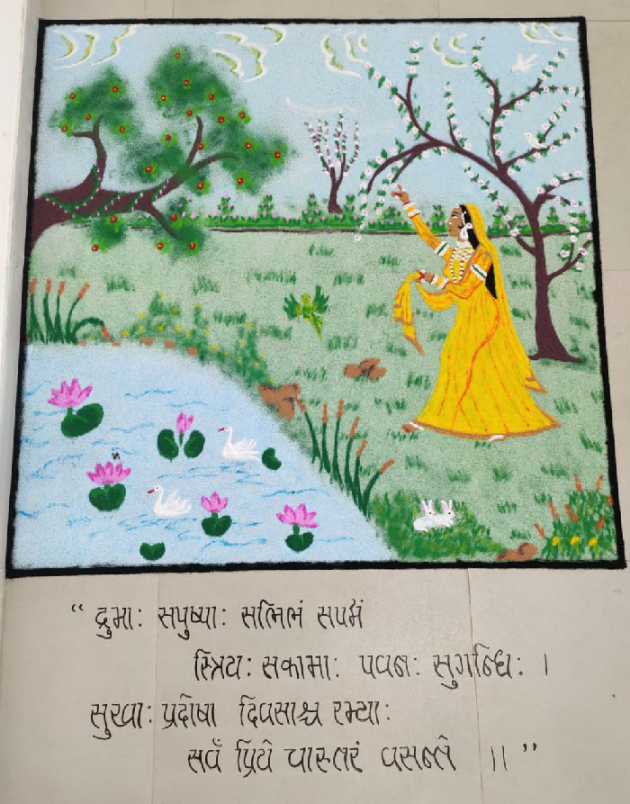 “ द्रुमाः सपुष्पाः सलिलं सपद्मं
स्त्रियः सकामाः पवनः सुगन्धिः ।
सुखाः प्रदोषा दिवसाश्च रम्याः
सर्वं प्रिये चारुतरं वसन्ते ॥ ”